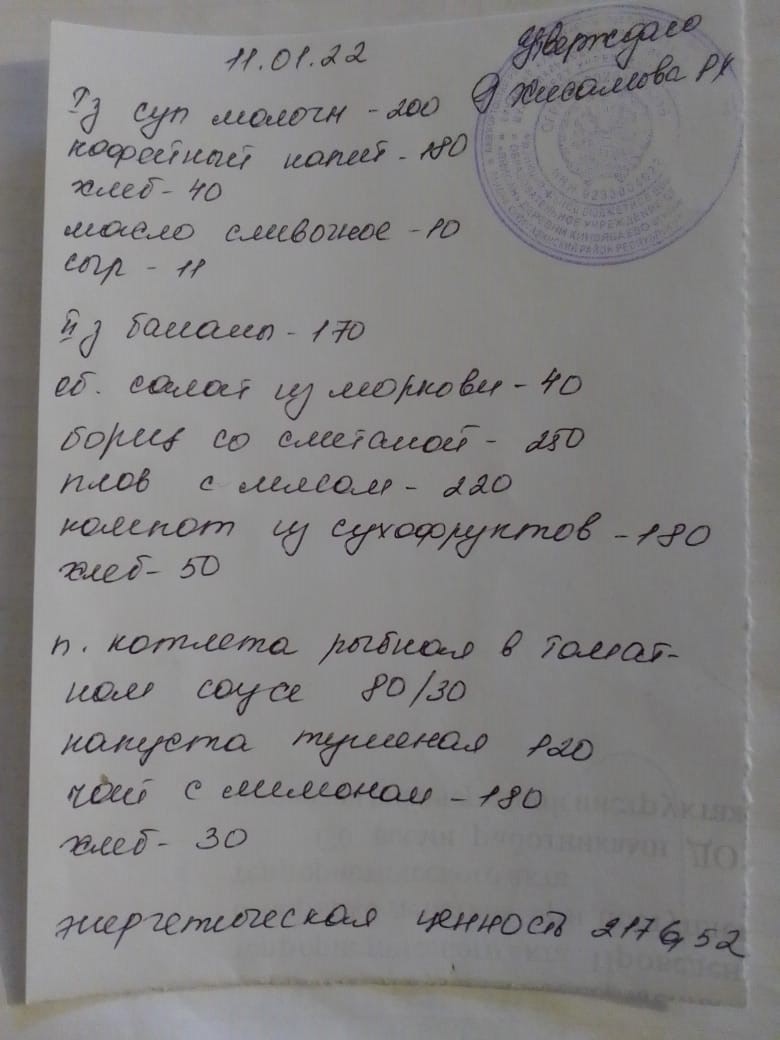 11.01.22
Утверждаю
Хисамова РК
I з суп молочн - 200
кофейный напит - 180
хлеб - 40
масло сливочное - 10
сыр - 11
II з бананы - 170
об. салат из моркови - 40
борщ со сметаной - 250
плов с мясом - 220
компот из сухофруктов - 180
хлеб - 50
п. котлета рыбная в томат-
ном соусе 80/30
капуста тушеная 120
чай с лимоном - 180
хлеб - 30
энергетическая ценность 2176,52